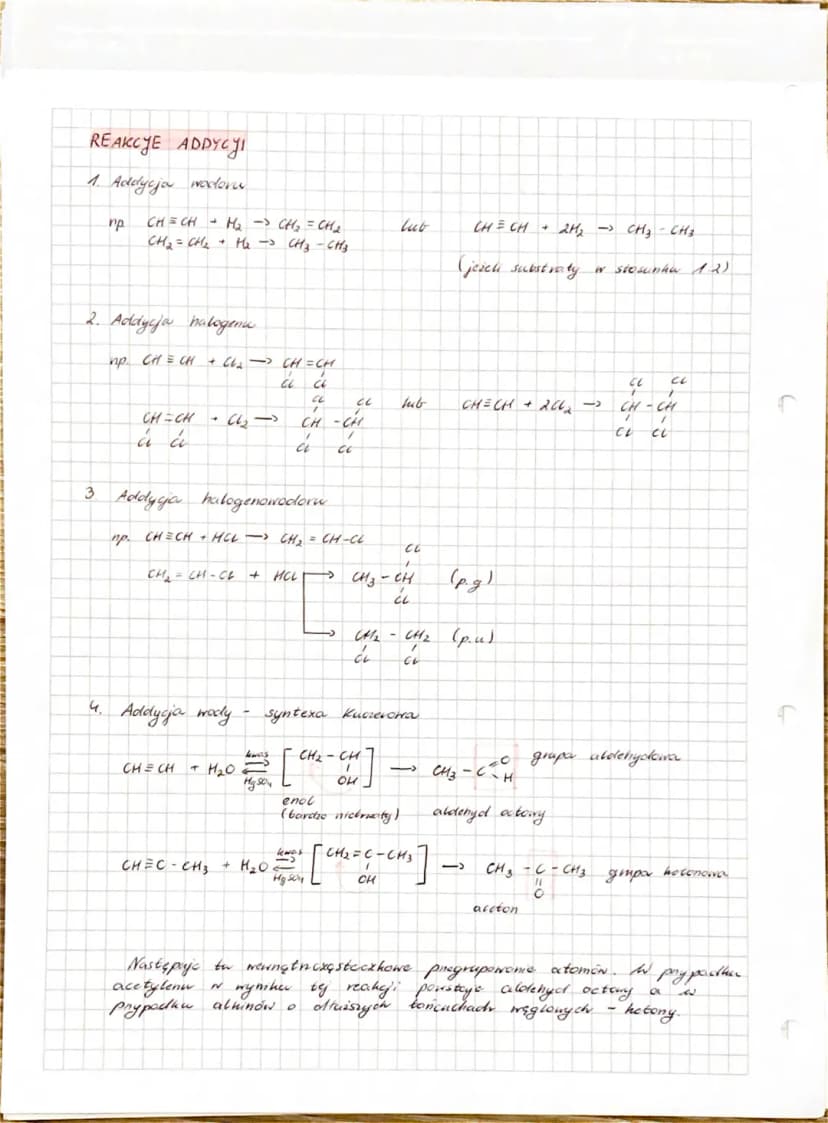 REAKCJE ADDYCJI
1. Addycja wodoru
np CH ≡ CH + H₂ → CH₂ = CH₂ lub CH ≡ CH + 2H₂ → CH₃ - CH₃
CH₂ = CH₂ + H₂ → CH₃ - CH₃
(jeżeli substraty w stosunku 1:2)
2. Addycja halogenu
np. CH ≡ CH + Cl₂ → CH = CH
Cl Cl
Cl Cl Cl Cl
CH = CH + Cl₂ → CH - CH lub CH ≡ CH + 2Cl₂ → CH - CH
Cl Cl Cl Cl Cl Cl
3 Addycja halogenowodoru
np. CH ≡ CH + HCl → CH₂ = CH-Cl
Cl
CH₂ = CH - Cl + HCl → CH₃ - CH (p.g)
Cl
→ CH₂ - CH₂ (p.u)
Cl Cl
4. Addycja wody - synteza Kuczerowa
CH ≡ CH + H₂O ⇌ kwas HgSO₄ [CH₂ - CH OH] → CH₃ - C O H grupa aldehydowa
enol
(bardzo nietrwały) aldehyd octowy
CH ≡ C - CH₃ + H₂O ⇌ kwas HgSO₄ [CH₂ = C - CH₃ OH] → CH₃ - C - CH₃ grupa ketonowa
O
aceton
Następuje tu wewnątrzcząsteczkowe przegrupowanie atomów. W przypadku
acetylenu w wyniku tej reakcji powstaje aldehyd octowy a w
przypadku alkinów o dłuższych łańcuchach węglowych - ketony.